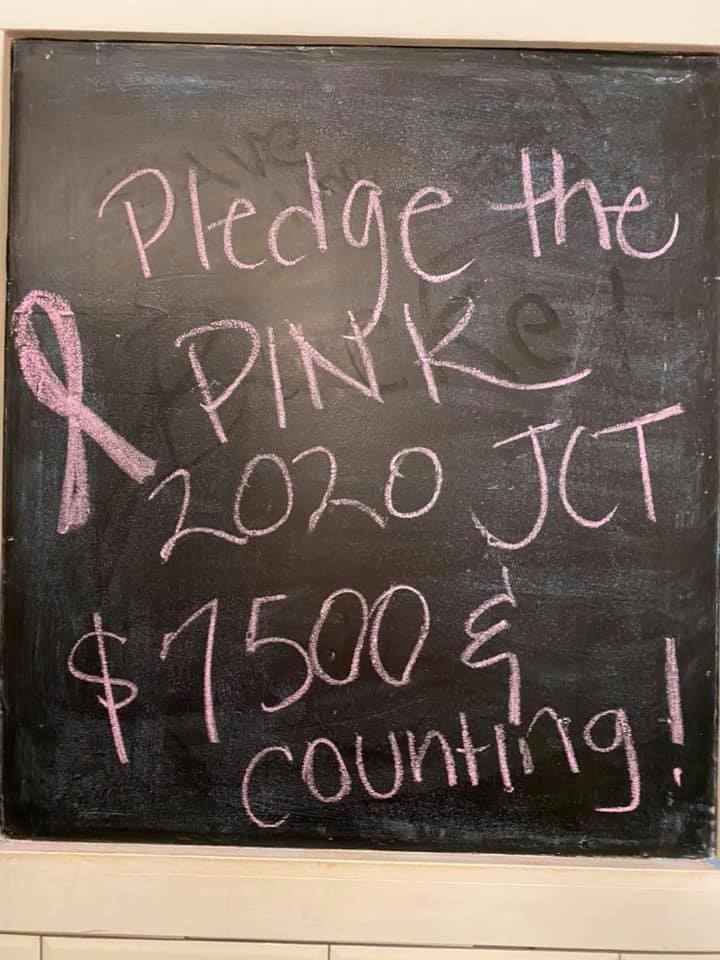 Pledge the
PINK
2020 JCT
$7500 &
counting!